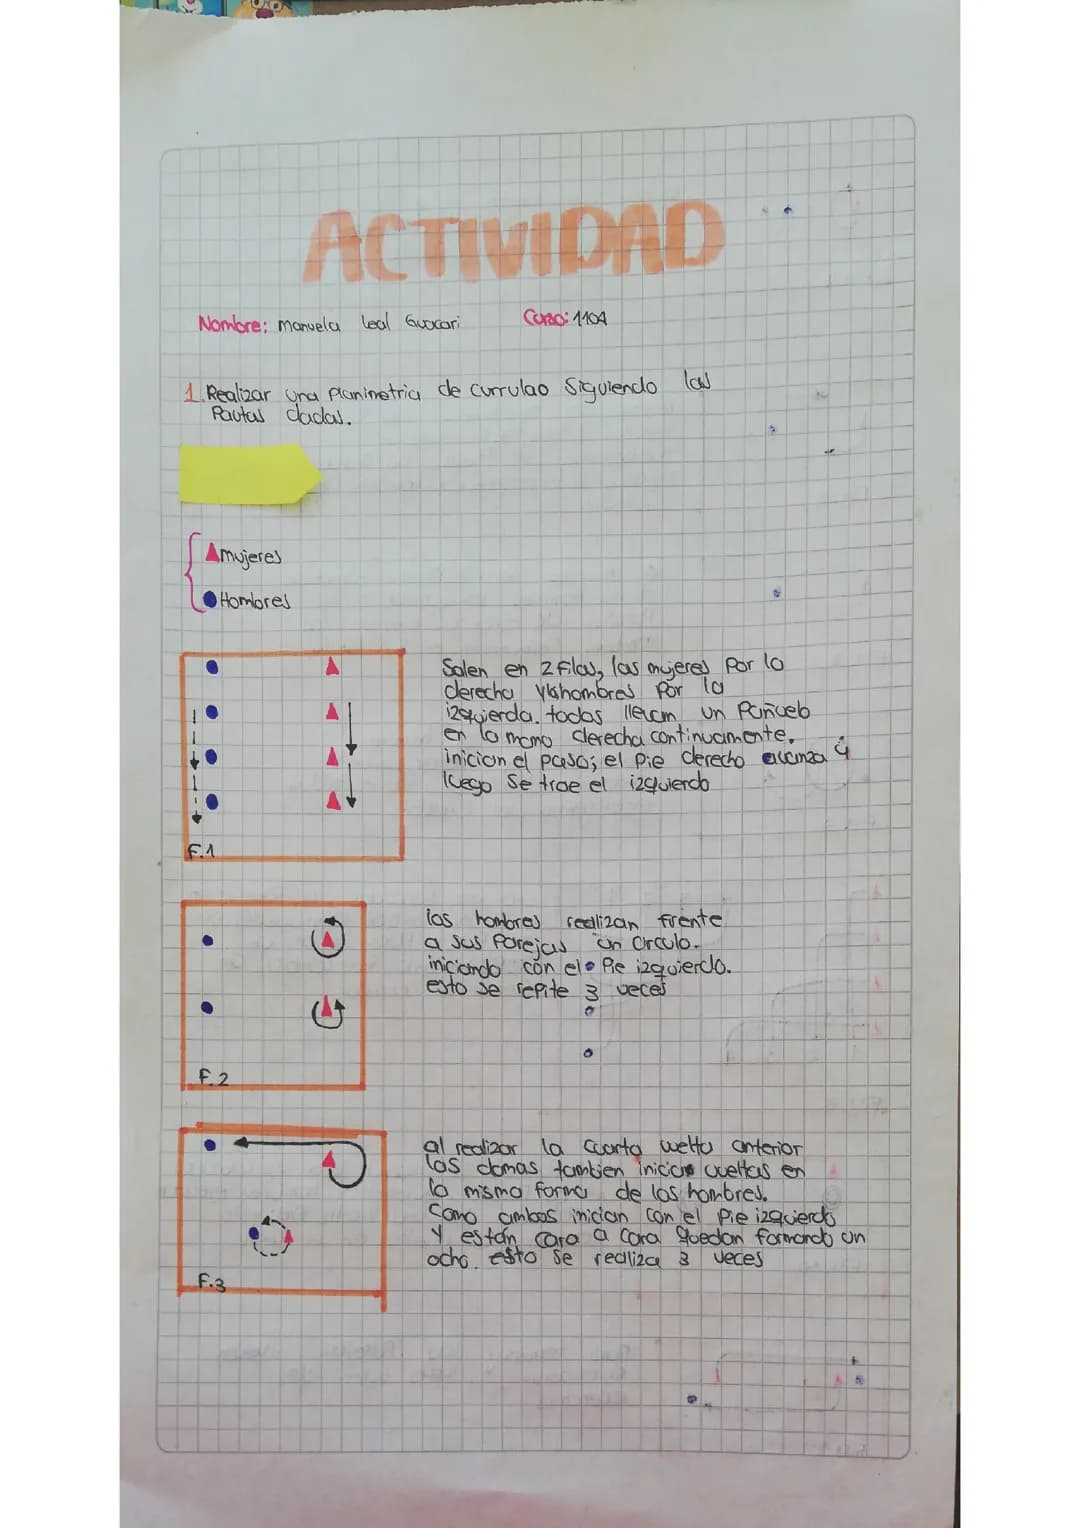 ACTIVIDAD
Nombre: manuela leal Guacari Curso: 1104
1. Realizar una Planimetria de currulao Siguiendo las
Pautas dadas.
mujeres
Hombres
Salen en 2 Filas, las mujeres por la
derecha y los hombres por la
izquierda. todos llevan un Pañuelo
en la mano derecha continuamente.
inician el paso; el pie derecho avanza y
luego se trae el izquierdo
F.1
los hombres realizan frente
a sus Parejas un circulo.
iniciando con el Pie izquierdo.
esto se repite 3 veces
F.2
al realizar la cuarta vuelta anterior
las damas tambien inician vueltas en
la misma forma de los hombres.
Como ambos inician con el pie izquierdo
y están cara a cara quedan formando un
ocho. esto se realiza 3 veces
F.3